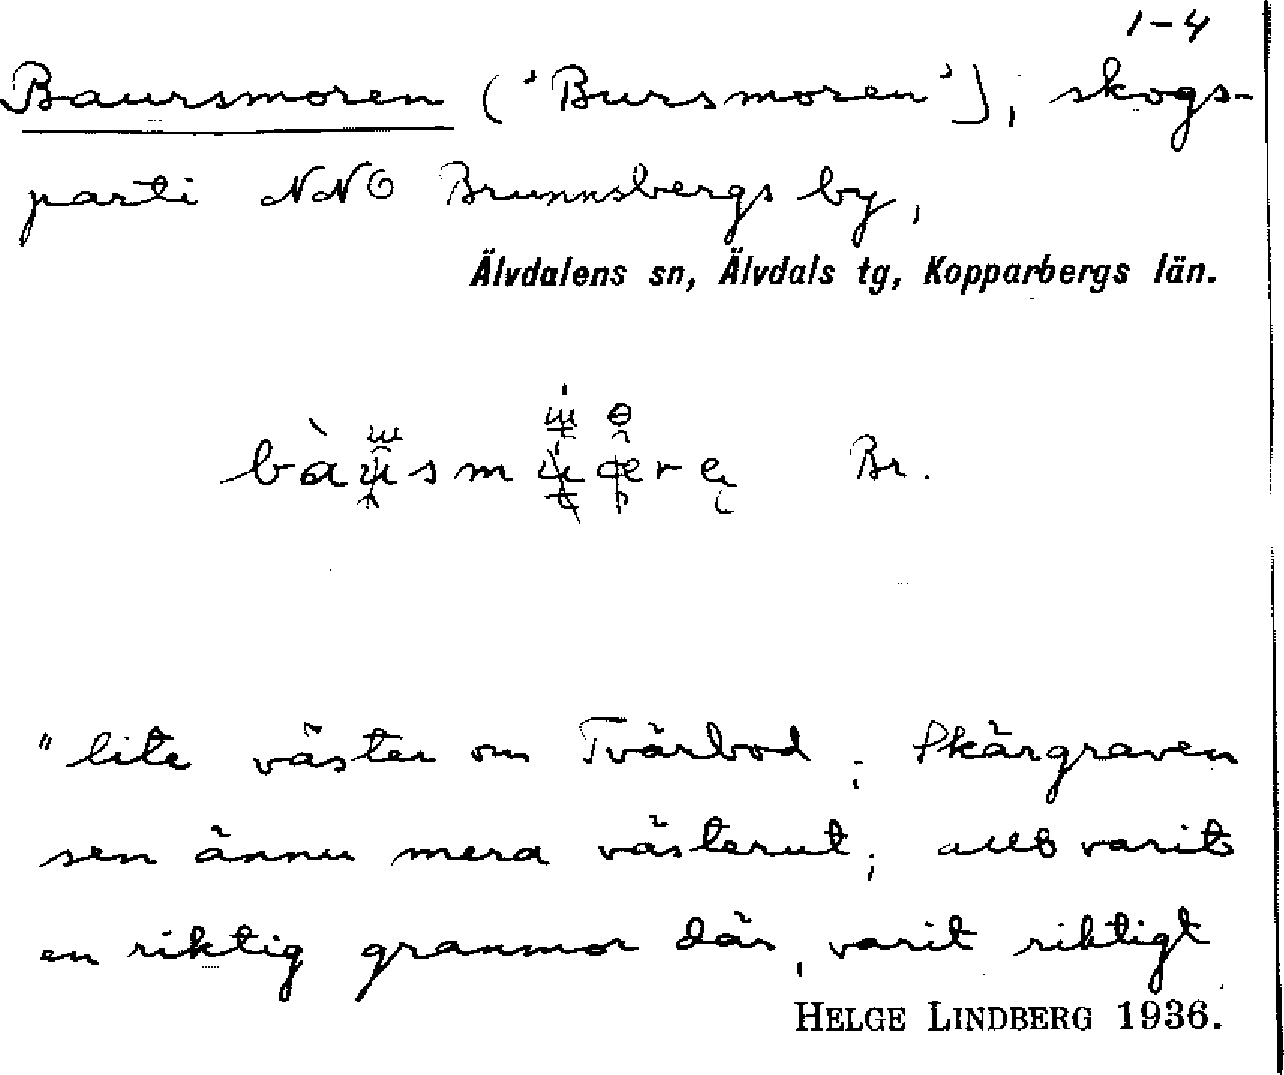 1-4
Baursmoren ('Bursmoren'), skogs-
parti NNO Brunnsbergs by,
Älvdalens sn, Älvdals tg, Kopparbergs län.
Br.
"lite väster om Tvärbod; Skärgraven
sen ännu mera västerut; allt varit
en riktig granmor där, varit riktigt
HELGE LINDBERG 1936.